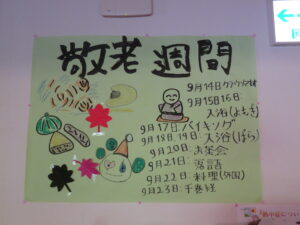 敬老週間
9月14日
9月15日16日
入浴(よもぎ)
9月17日 バイキング
9月18日19日 入浴(ばら)
9月20日 お茶会
9月21日 落語
9月22日 料理
9月23日